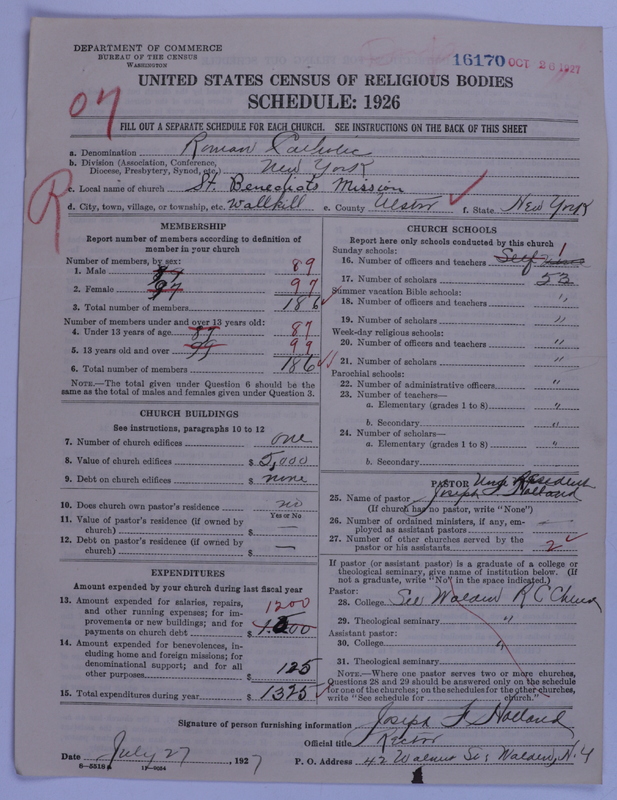 DEPARTMENT OF COMMERCE
BUREAU OF THE CENSUS
WASHINGTON
16170 OCT 26 1927
UNITED STATES CENSUS OF RELIGIOUS BODIES
SCHEDULE: 1926
07
FILL OUT A SEPARATE SCHEDULE FOR EACH CHURCH. SEE INSTRUCTIONS ON THE BACK OF THIS SHEET
a. Denomination Roman Catholic
b. Division (Association, Conference, Diocese, Presbytery, Synod, etc.) New York
c. Local name of church St. Benedict's Mission
d. City, town, village, or township, etc. Wallkill e. County Ulster f. State New York
R
MEMBERSHIP
Report number of members according to definition of
member in your church
Number of members, by sex:
1. Male 89
2. Female 97 97
3. Total number of members 186
Number of members under and over 13 years old:
4. Under 13 years of age 87 87
5. 13 years old and over 99 99
6. Total number of members 186
NOTE.—The total given under Question 6 should be the
same as the total of males and females given under Question 3.
CHURCH BUILDINGS
See instructions, paragraphs 10 to 12
7. Number of church edifices one
8. Value of church edifices $ 5,000
9. Debt on church edifices $ none
10. Does church own pastor's residence no
Yes or No
11. Value of pastor's residence (if owned by
church) $ —
12. Debt on pastor's residence (if owned by
church) $ —
EXPENDITURES
Amount expended by your church during last fiscal year
13. Amount expended for salaries, repairs,
and other running expenses; for im-
provements or new buildings; and for
payments on church debt $ 1200
14. Amount expended for benevolences, in-
cluding home and foreign missions; for
denominational support; and for all
other purposes $ 125
15. Total expenditures during year $ 1325
CHURCH SCHOOLS
Report here only schools conducted by this church
Sunday schools:
16. Number of officers and teachers Self 1
17. Number of scholars 52
Summer vacation Bible schools:
18. Number of officers and teachers "
19. Number of scholars "
Week-day religious schools:
20. Number of officers and teachers "
21. Number of scholars "
Parochial schools:
22. Number of administrative officers "
23. Number of teachers—
a. Elementary (grades 1 to 8) "
b. Secondary "
24. Number of scholars—
a. Elementary (grades 1 to 8) "
b. Secondary
PASTOR Non Resident
25. Name of pastor Joseph F. Holland
(If church has no pastor, write "None")
26. Number of ordained ministers, if any, em-
ployed as assistant pastors —
27. Number of other churches served by the
pastor or his assistants 2
If pastor (or assistant pastor) is a graduate of a college or
theological seminary, give name of institution below. (If
not a graduate, write "No" in the space indicated.)
Pastor:
28. College See Walden R C Church
29. Theological seminary "
Assistant pastor:
30. College "
31. Theological seminary
NOTE.—Where one pastor serves two or more churches,
Questions 28 and 29 should be answered only on the schedule
for one of the churches; on the schedules for the other churches,
write "See schedule for ______ church."
Signature of person furnishing information Joseph F. Holland
Official title Rector
Date July 27, 1927 P. O. Address 42 Walnut St; Walden, N.Y